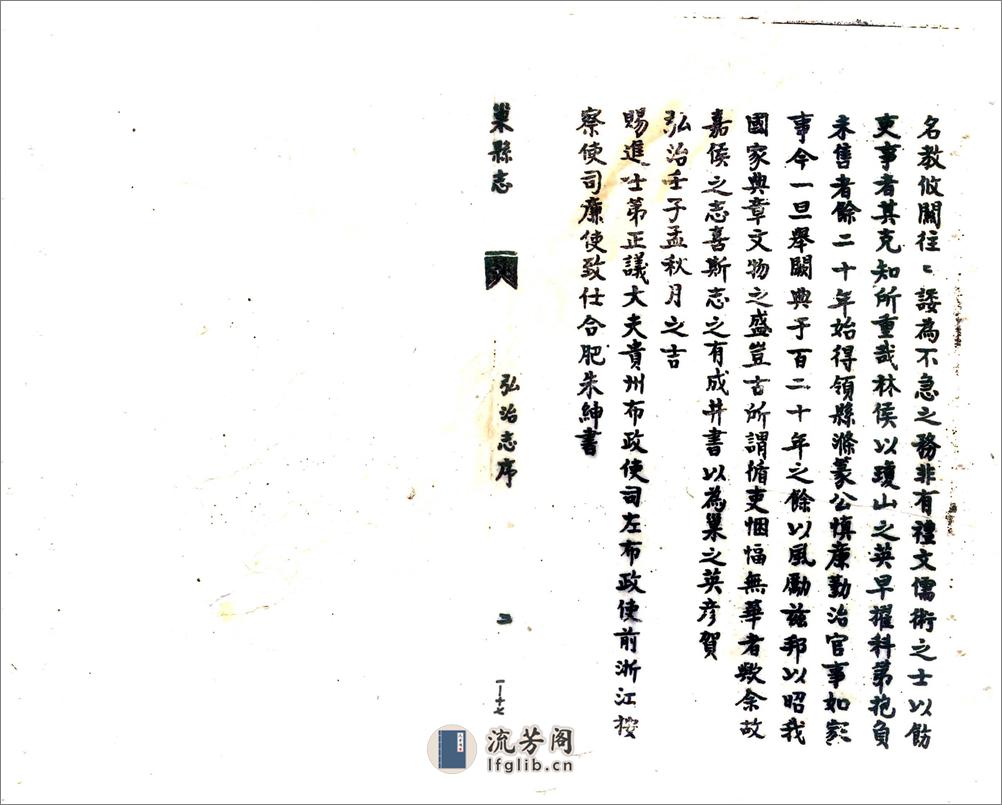 名教攸關往〻諉為不急之務非有禮文儒術之士以飭
吏事者其克知所重哉林侯以瓊山之英早擢科第抱負
未售者餘二十年始得領縣滌篆公慎廉勤治官事如家
事今一旦舉闕典于百二十年之餘以風勵兹邦以昭我
國家典章文物之盛豈古所謂循吏悃愊無華者歟余故
嘉侯之志喜斯志之有成并書以為巢之英彦賀
弘治壬子孟秋月之吉
賜進士第正議大夫貴州布政使司左布政使前浙江按
察使司廉使致仕合肥朱紳書
巢縣志
弘治志序
二
一—十七
流芳阁
lfglib.cn